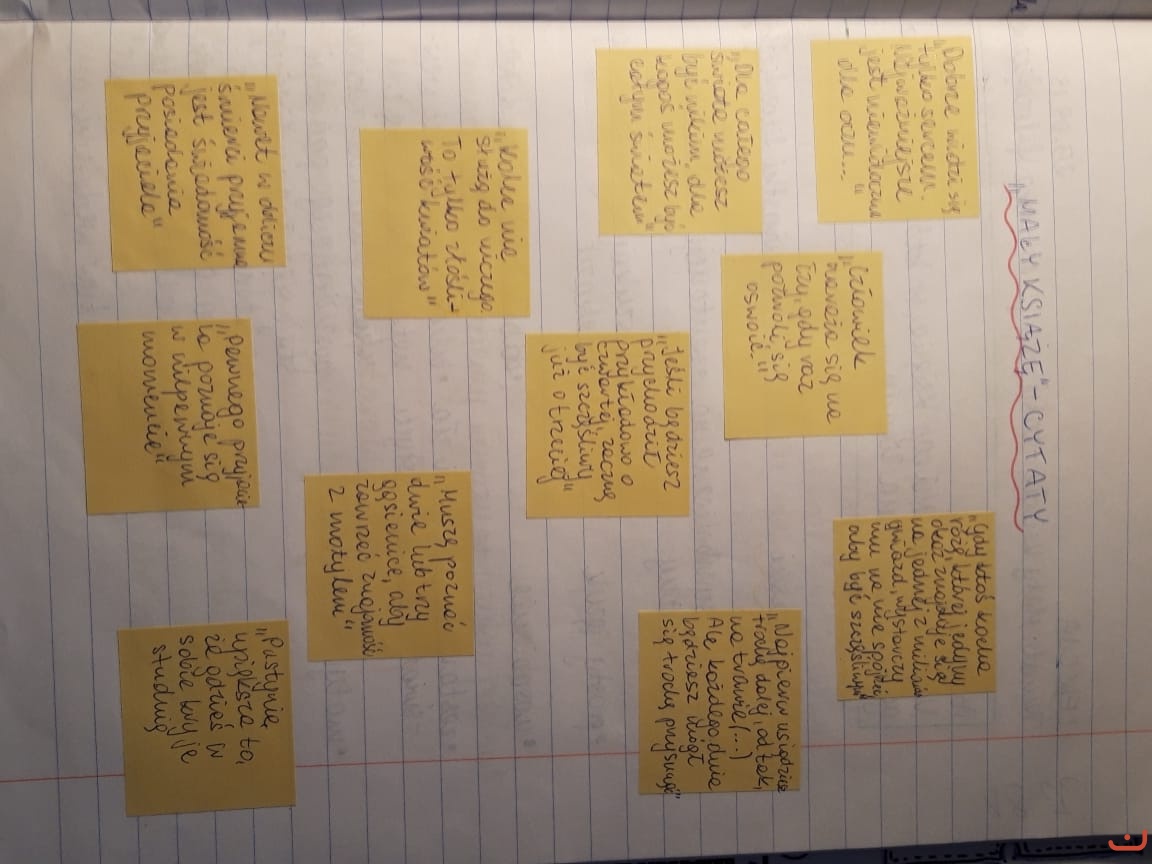 „MAŁY KSIĄŻĘ" - CYTATY
„Dobrze widzi się
tylko sercem.
Najważniejsze
jest niewidoczne
dla oczu..."
„Gdy ktoś kocha
różę, której jedyny
okaz znajduje się
na jednej z milionów
gwiazd, wystarczy
mu na nie spojrzeć
aby być szczęśliwym
„Człowiek
naraża się na
łzy, gdy raz
pozwoli się
oswoić."
„Dla całego
świata możesz
być nikim, dla
kogoś możesz być
całym światem"
„Najpierw usiądziesz
trochę dalej, ot tak,
na trawie (...)
Ale każdego dnia
będziesz mógł
się trochę przysunąć"
„Jeśli będziesz
przychodził
przykładowo o
czwartej, zacznę
być szczęśliwy
już o trzeciej"
„Kolce nie
służą do niczego
To tylko złośli-
wość kwiatów"
„Muszę poznać
dwie lub trzy
gąsienice, aby
zawrzeć znajomość
z motylem"
„Nawet w obliczu
śmierci przyjemna
jest świadomość
posiadania
przyjaciela"
„Pewnego przyjacie-
la poznaje się
w niepewnym
momencie"
„Pustynię
upiększa to,
że gdzieś w
sobie kryje
studnię